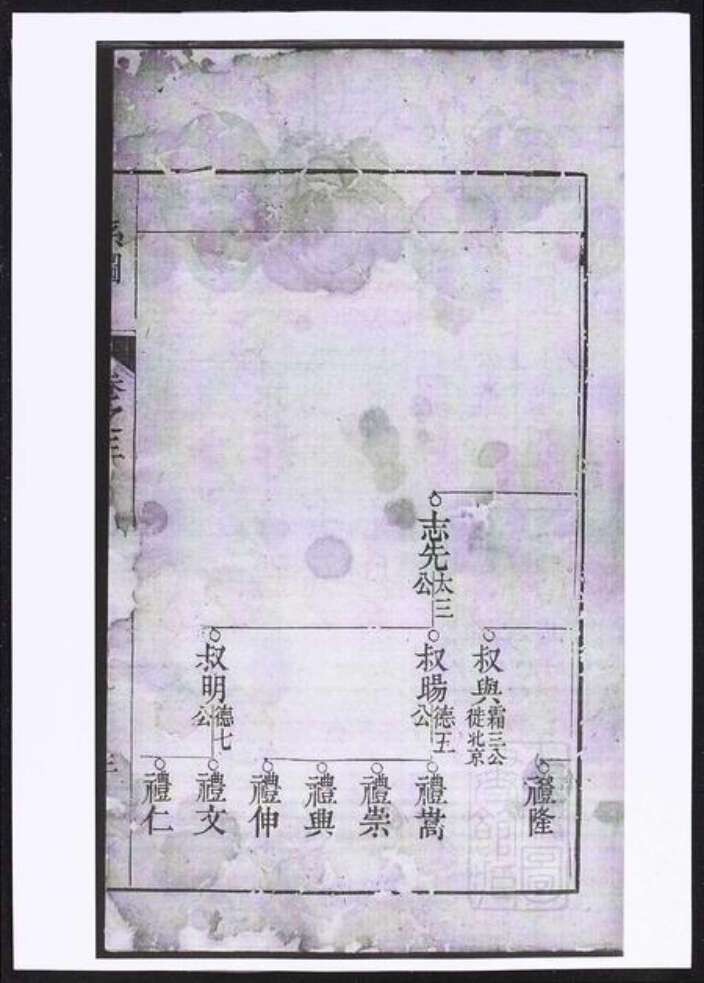 志先 太三公
叔與 霜三公徙北京
叔暘 德五公
叔明 德七公
禮隆
禮嵩
禮崇
禮典
禮伸
禮文
禮仁
系圖
卷之三